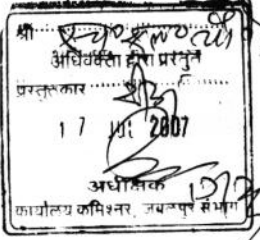 श्री
अधिवक्ता द्वारा प्रस्तुत
प्रस्तुतकार
17 JUL 2007
अधीक्षक
कार्यालय कमिश्नर, जबलपुर संभाग